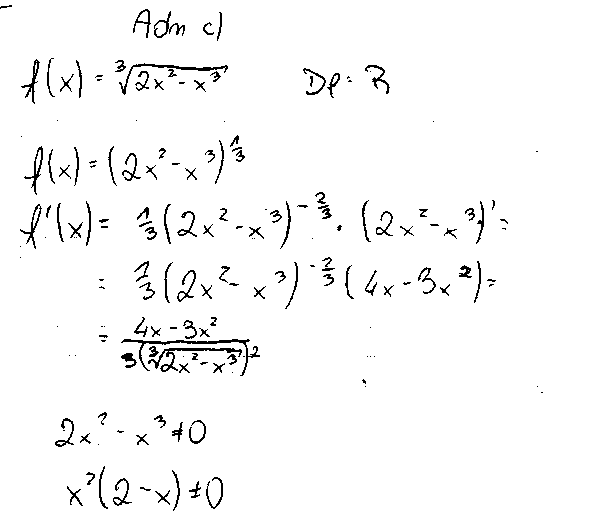 Adm c)
f(x) = ∛(2x² - x³)   Df: R
f(x) = (2x² - x³)^(1/3)
f'(x) = 1/3 (2x² - x³)^(-2/3) · (2x² - x³)' =
= 1/3 (2x² - x³)^(-2/3) (4x - 3x²) =
= (4x - 3x²) / (3(∛(2x² - x³))²)
2x² - x³ ≠ 0
x²(2 - x) ≠ 0